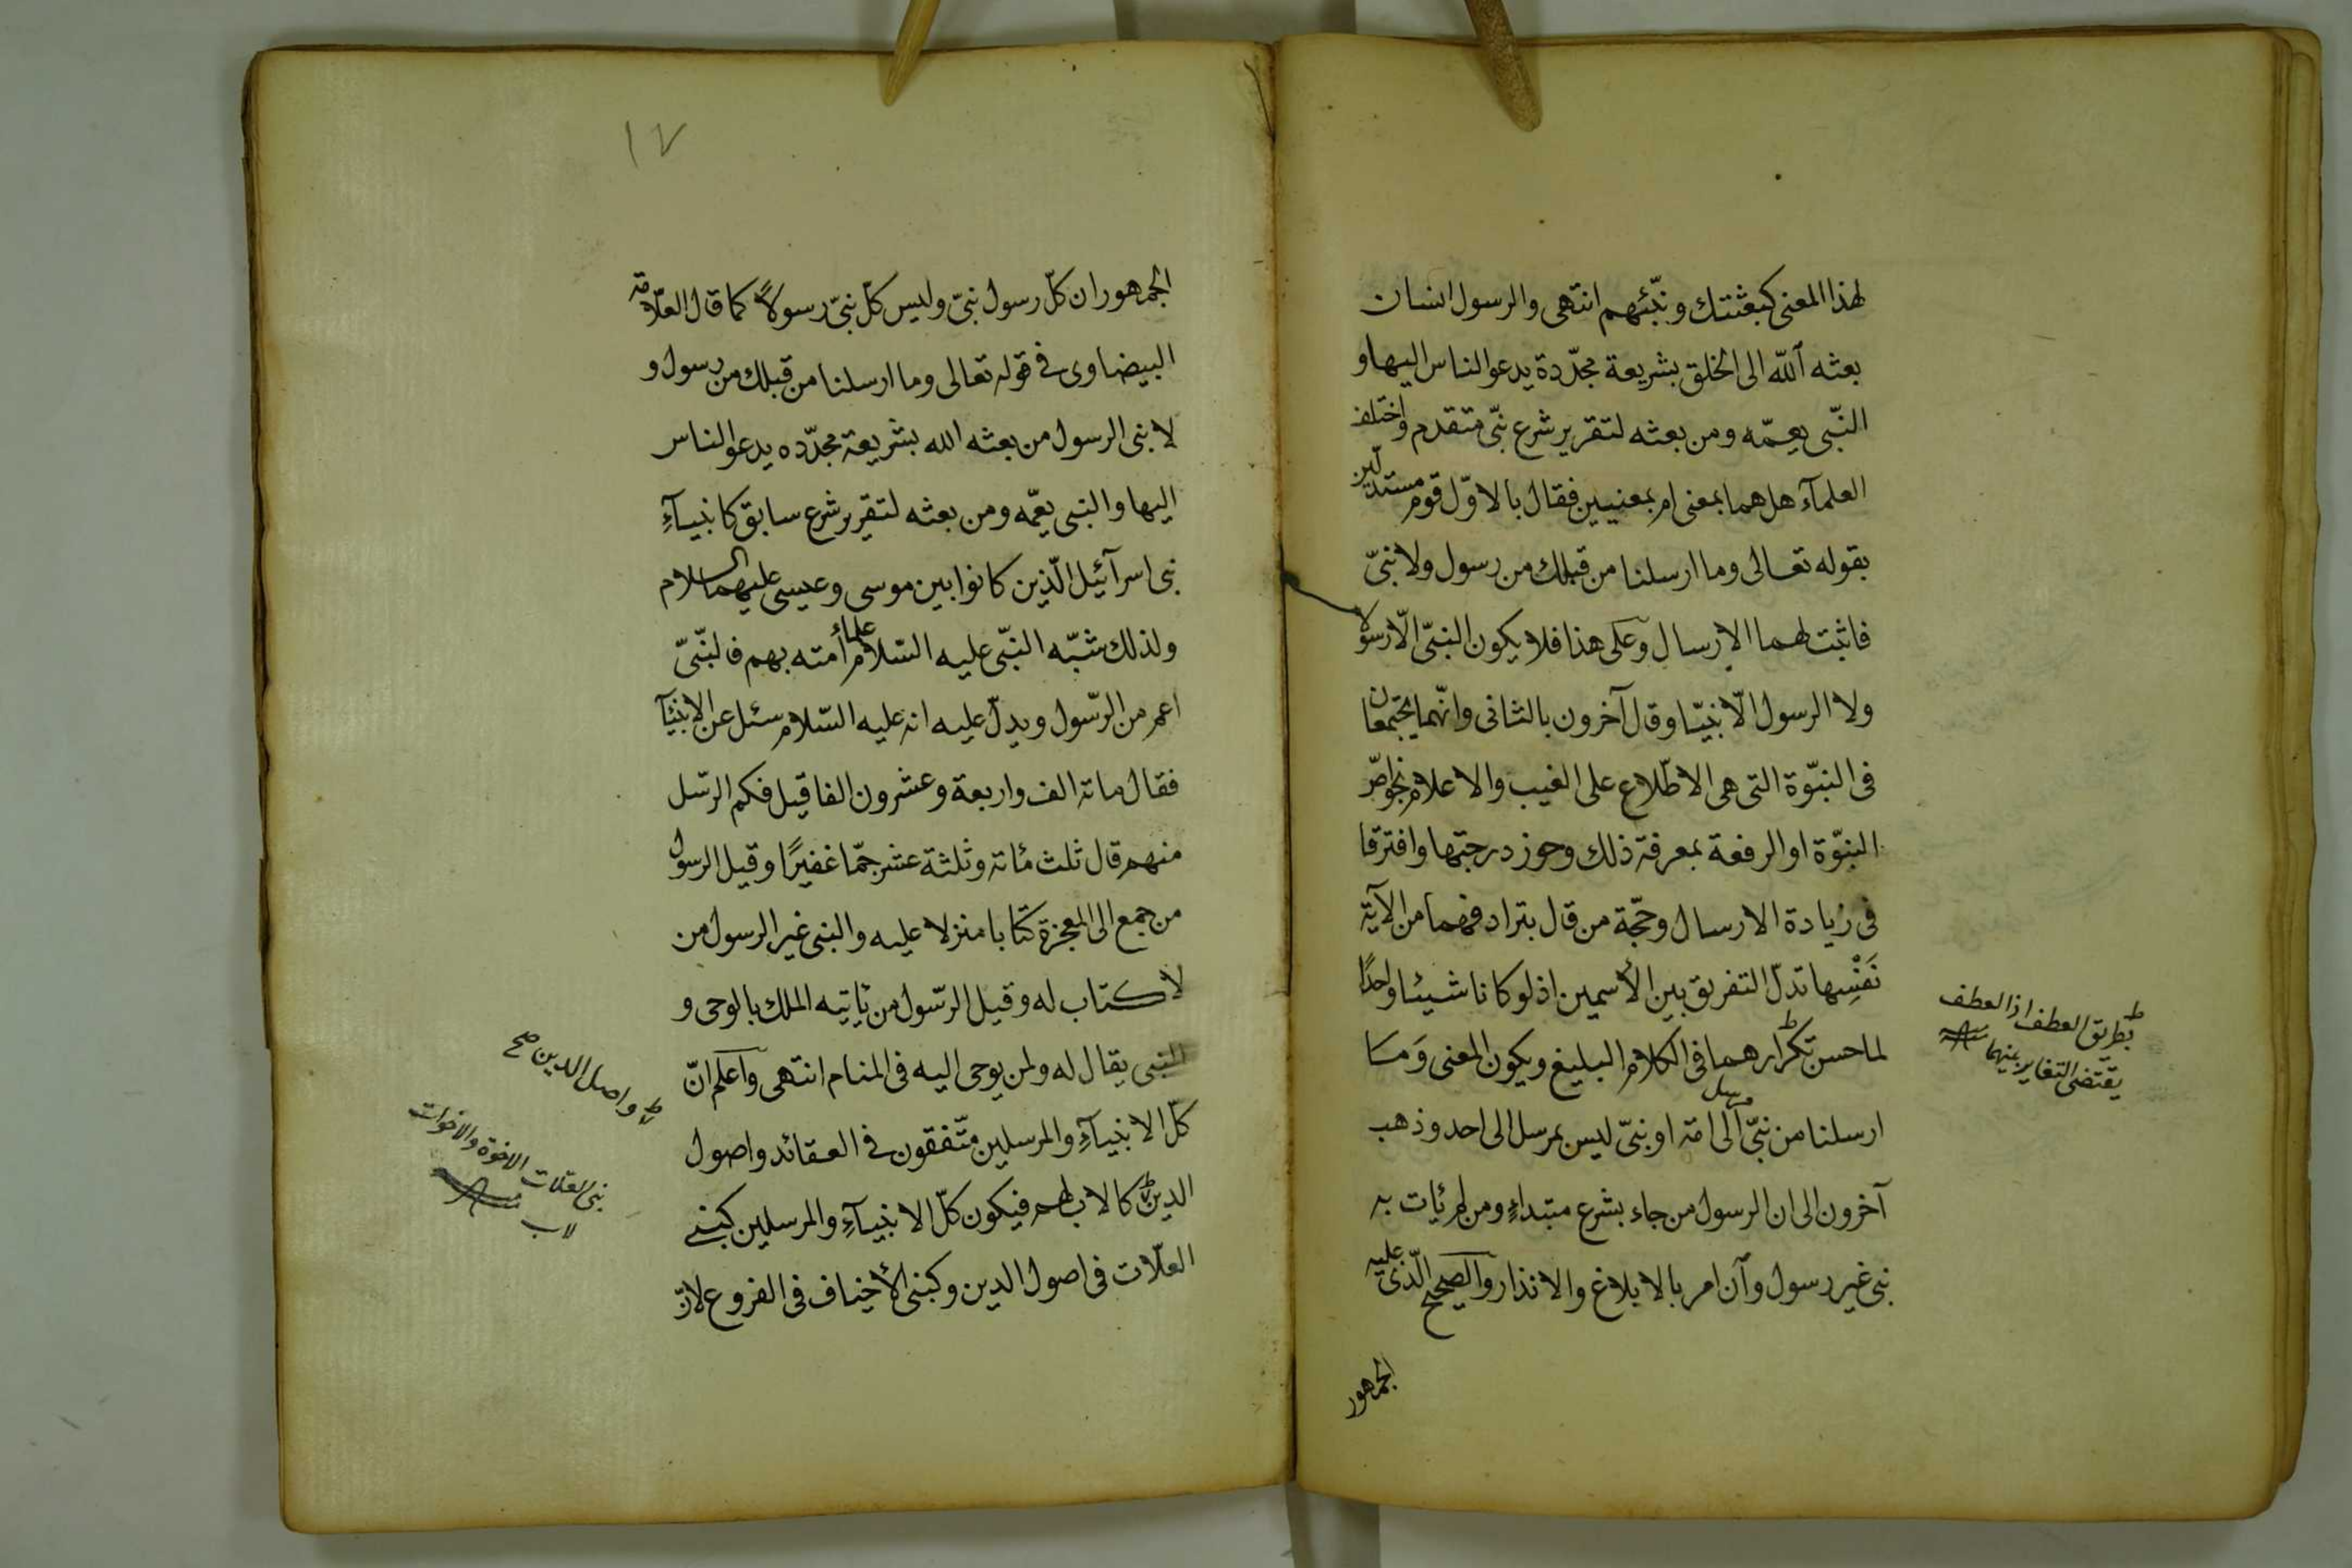 لهذا المعنى كبعثتك ونبّئهم انتهى والرسول انسان
بعثه الله الى الخلق بشريعة مجدّدة يدعو الناس اليها و
النّبى يعمّه ومن بعثه لتقرير شرع نبّى متقدم واختلف
العلمآء هل هما بمعنى ام بمعنيين فقال بالاوّل قوم مستدلّين
بقوله تعالى وما ارسلنا من قبلك من رسول ولا نبىّ
فاثبت لهما الارسال وعلى هذا فلا يكون النبىّ الّا رسولا
ولا الرسول الّا نبيّا وقال آخرون بالثانى وانّهما يجتمعان
فى النبوّة التى هى الاطّلاع على الغيب والاعلام بخواصّ
النبوّة او الرفعة بمعرفة ذلك وحوز درجتها وافترقا
فى زيادة الارسال وحجّة من قال بترادفهما من الآية
نَفْسِها تدلّ التفريق بين الأسمين اذ لو كانا شيئا واحدًا
لما حسن تكرارهما فى الكلام البليغ ويكون المعنى وَمَا
ارسلنا من نبىّ مرسل الى امة او نبىّ ليس بمرسل الى احد وذهب
آخرون الى ان الرسول من جاء بشرع مبتداءٍ ومن لم يأت به
نبى غير رسول وان امر بالابلاغ والانذار والصحيح الّذى عليه
الجمهور
بطريق العطف اذ العطف
يقتضى التغاير بينهما
١٧
الجمهور ان كلّ رسول نبىّ وليس كلّ نبىّ رسولاً كما قال العلّامة
البيضاوى فى قوله تعالى وما ارسلنا من قبلك من رسول و
لا نبى الرسول من بعثه الله بشريعة مجدّده يدعو الناس
اليها والنبى يعمّه ومن بعثه لتقرير شرع سابق كانبيآءِ
بنى اسرآئيل الّذين كانوا بين موسى وعيسى عليهما السلام
ولذلك شبّه النّبى عليه السّلام علماء أمته بهم فالنّبىّ
اعم من الرّسول ويدلّ عليه انه عليه السّلام سئل عن الانبيآ
فقال مائة الف واربعة وعشرون الفا قيل فكم الرّسل
منهم قال ثلث مائة وثلثة عشر جمّا غفيرًا وقيل الرسول
من جمع الى المعجزة كتابا منزلا عليه والنبى غير الرسول من
لا كتاب له وقيل الرّسول من يأتيه الملك بالوحى و
النبى يقال له ولمن يوحى اليه فى المنام انتهى واعلم انّ
كلّ الانبيآءِ والمرسلين متّفقون فى العقائد واصول
الدين كالاب لهم فيكون كلّ الانبيآءِ والمرسلين كبنى
العلّات فى اصول الدين وكبنى الأخياف فى الفروع لانّ
واصل الدين صح
بنى العلات الاخوة والاخوات
لاب